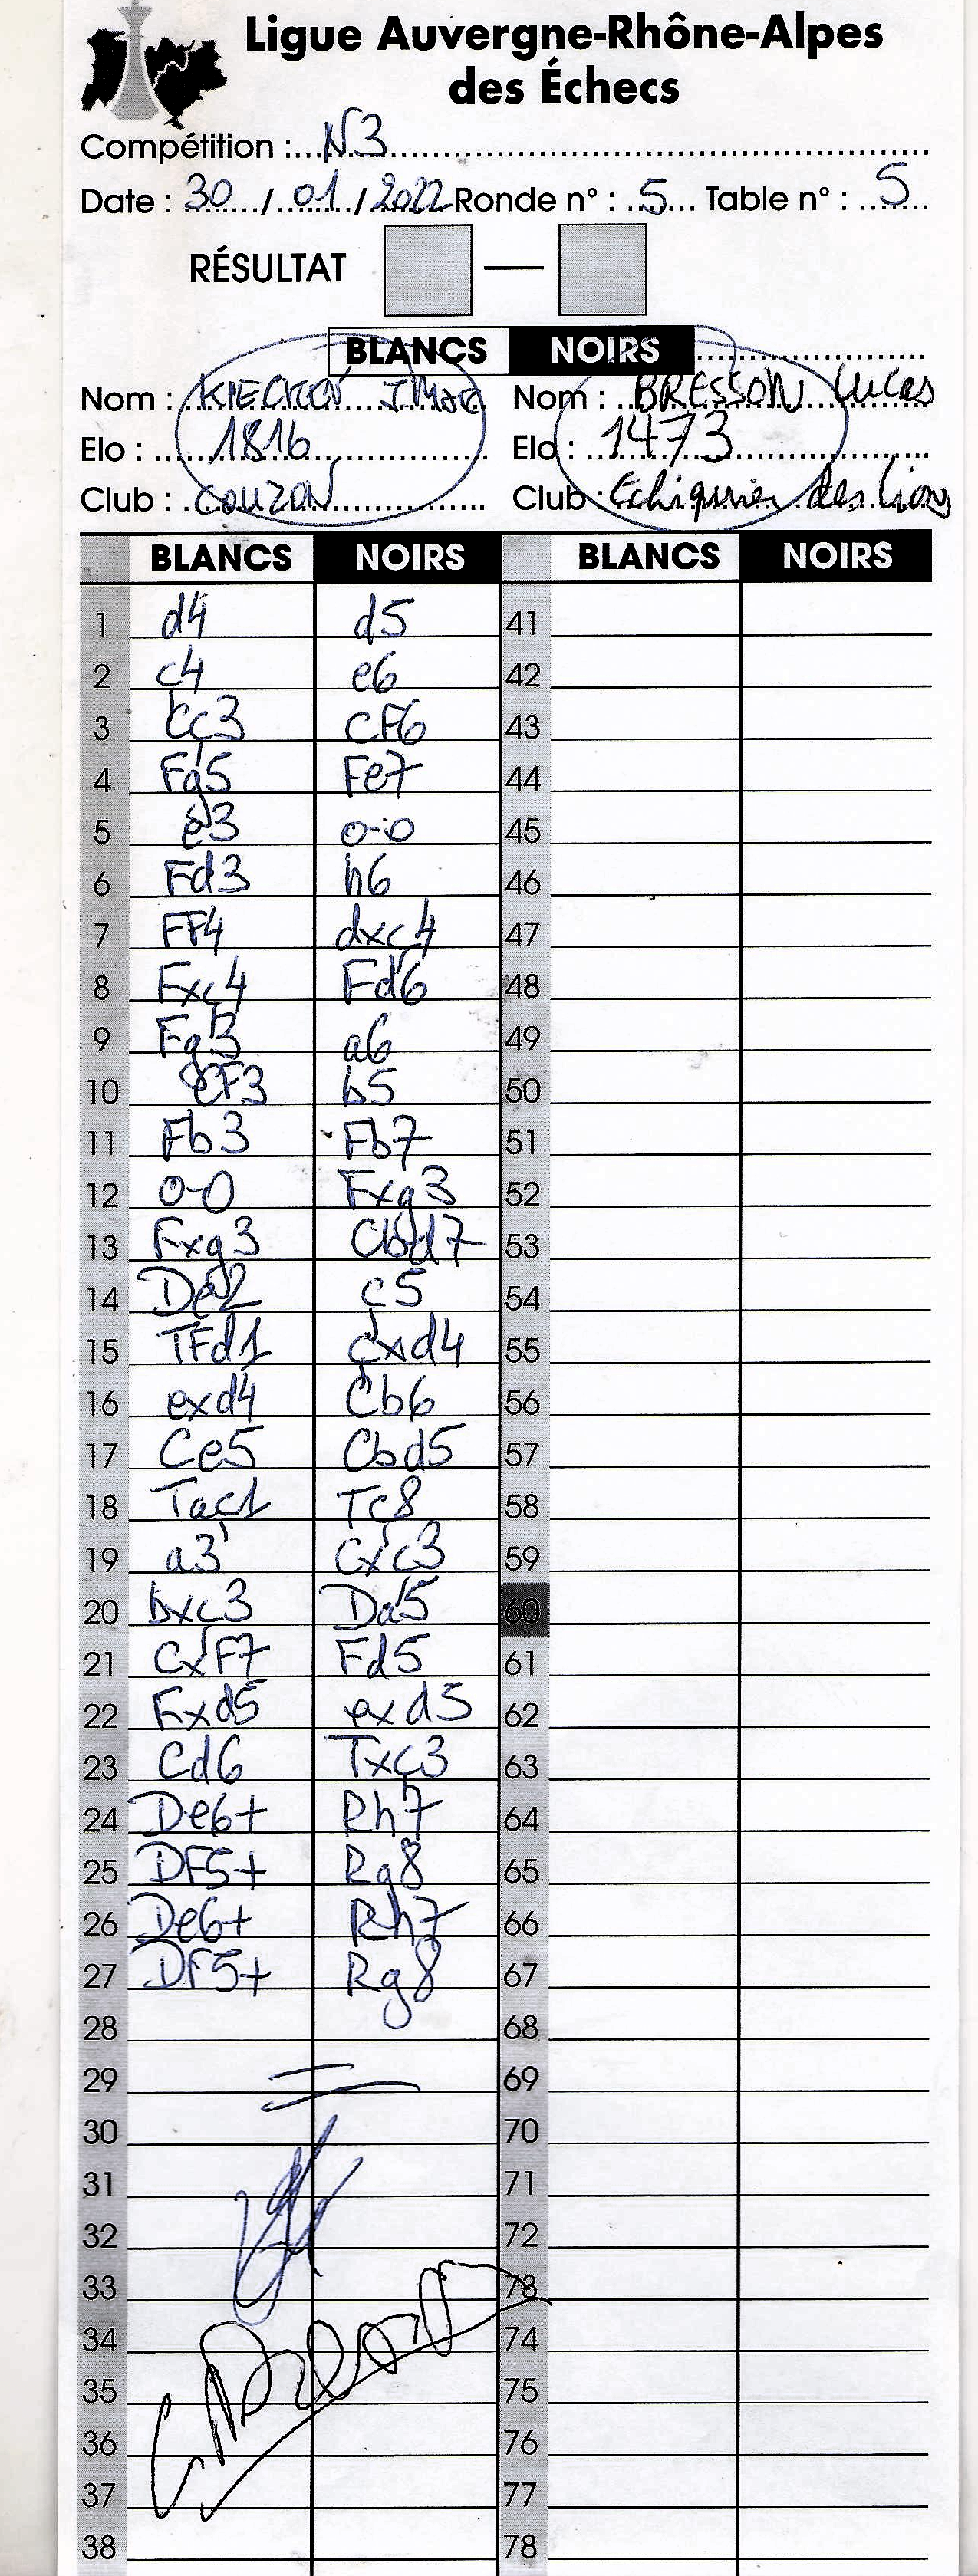 Ligue Auvergne-Rhône-Alpes
des Échecs
Compétition : N3
Date : 30 / 01 / 2022 Ronde n° : 5 Table n° : 5
RÉSULTAT —
BLANCS NOIRS
Nom : Nom : BRESSON Lucas
Elo : 1816 Elo : 1473
Club : COUZON Club : Echiquier des Lions
BLANCS NOIRS BLANCS NOIRS
1 d4 d5 41
2 c4 e6 42
3 Cc3 CF6 43
4 Fg5 Fe7 44
5 e3 o-o 45
6 Fd3 h6 46
7 FF4 dxc4 47
8 Fxc4 Fd6 48
9 Fg3 a6 49
10 CF3 b5 50
11 Fb3 Fb7 51
12 O-O Fxg3 52
13 Fxg3 Cbd7 53
14 De2 c5 54
15 TFd1 cxd4 55
16 exd4 Cb6 56
17 Ce5 Cbd5 57
18 Tac1 Tc8 58
19 a3 Cxc3 59
20 bxc3 Da5 60
21 CxF7 Fd5 61
22 Fxd5 exd5 62
23 Cd6 Txc3 63
24 De6+ Rh7 64
25 DF5+ Rg8 65
26 De6+ Rh7 66
27 DF5+ Rg8 67
28 68
29 = 69
30 70
31 71
32 72
33 73
34 74
35 75
36 76
37 77
38 78